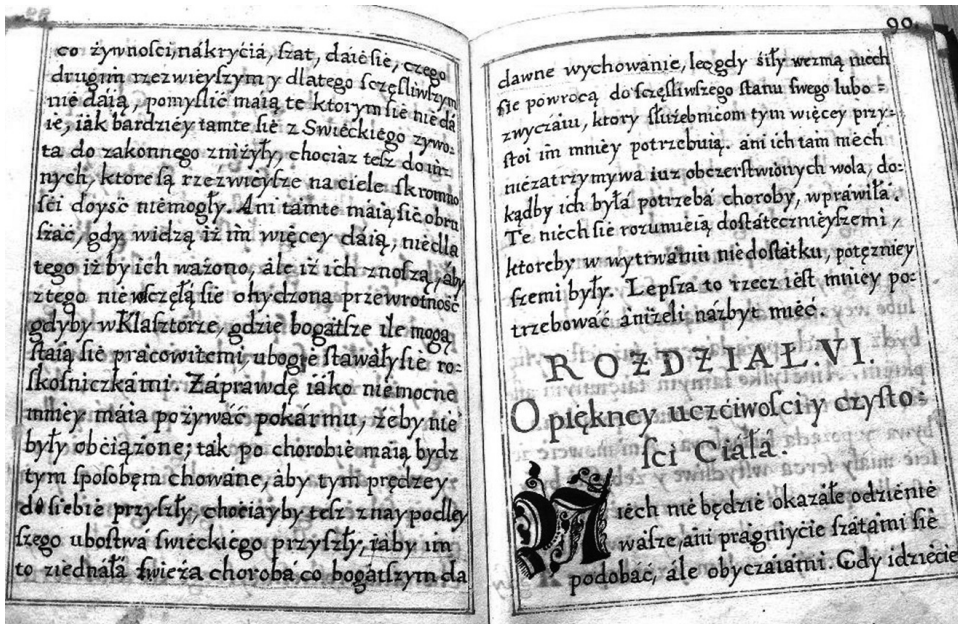 co żywnośći, nákryćia, szat, dáie śie, czego
drugim rzezwieyszym y dlatego sczęśliwszym
nie dáią, pomyślić máią te ktorym śie nie dá
ie, iák bárdziey támte śie z Swieckiego zywo-
ta do zakonnego zniżyły, choćiaz tesz do in-
nych, ktore są rzezwieysze na ciele skromno
śći doyść niemogły. Ani támte máią śie obru
száć, gdy widzą iż im więcey dáią, nie dla
tego iż by ich ważono, ále iż ich znoszą, áby
ztego nie wszczęłá śie ohydzona przewrotność
gdyby w Klasztorze, gdzie bogátsze ile mogą
stáią śie prácowitemi, ubogie stawáły śie ro-
skośniczkámi. Záprawdę iáko niemocne
mniey máia pożywáć pokármu, żeby nie
były obćiązone; ták po chorobie máią bydz
tym sposobęm chowáne, áby tym prędzey
do śiebie przyszły, choćiayby tesz z naypodley
szego ubostwa swieckiego przyszły, iáby im
to ziednáłá świeża chorobá, co bogátszym da
90
dawne wychowanie, lecz gdy śiły wezmą niech
śie powrocą do sczęśliwszego stanu swego lubo-
zwyczáiu, ktory służebnicom tym więcey przy-
stoi im mniey potrzebuią. áni ich tám niech
niezátrzymywa iuz obczerstwionych wola, do-
kądby ich była potrzebá choroby, wpráwiłá.
Te niech śie rozumieią dostátecznieyszemi,
ktoreby w wytrwániu niedostátku, potęzniey
szemi były. Lepsza to rzecz iest mniey po-
trzebowáć ániżeli názbyt mieć.
ROZDZIAŁ. VI.
O piękney uczćiwośći y czysto-
śći Ciáłá.
Niech nie będzie okazáłe odzienie
wásze, áni pragnićie szátámi śie
podobáć, ále obyczáiámi. Gdy idziećie